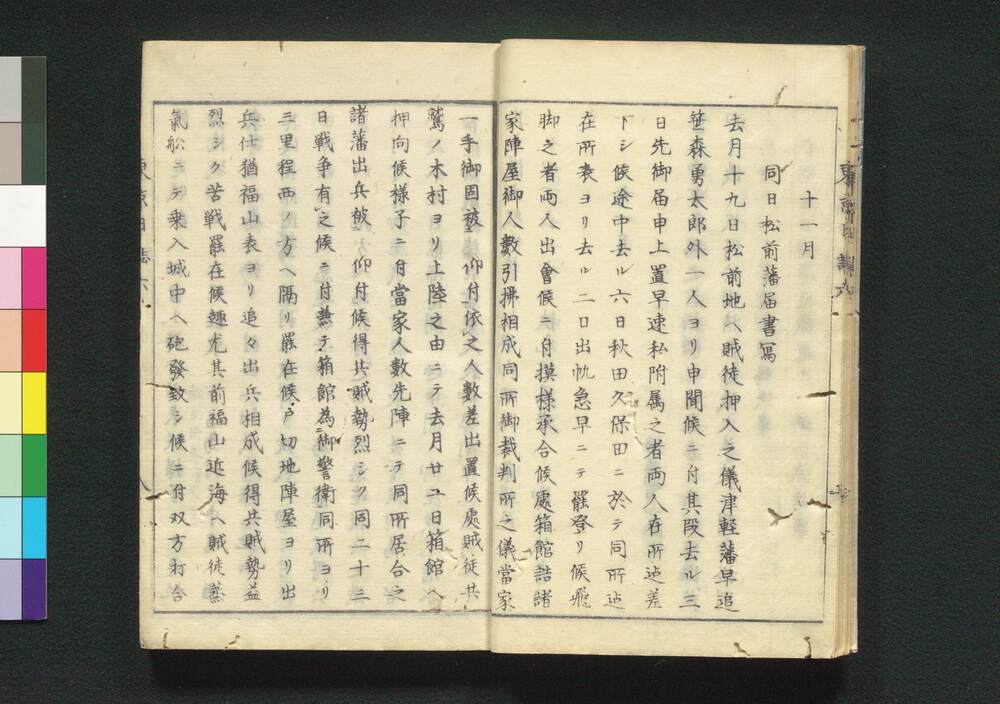 十一月
同日松前藩届書寫
去月十九日松前地ヘ賊徒押入之儀津軽藩早追
笹森勇太郎外一人ヨリ申聞候ニ付其段去ル三
日先御届申上置早速私附属之者両人在所迠差
下シ候途中去ル六日秋田久保田ニ於テ同所迠
在所表ヨリ去ル二日出帆急早ニテ罷登リ候飛
脚之者両人出會候ニ付摸様承合候處箱館詰諸
家陣屋御人數引拂相成同所御裁判所之儀當家
一手御固被 仰付依之人數差出置候處賊徒共
鷲ノ木村ヨリ上陸之由ニテ去月廿二日箱館ヘ
押向候様子ニ付當家人數先陣ニテ同所居合之
諸藩出兵被 仰付候得共賊勢烈シク同二十三
日戦争有之候ニ付兼テ箱館為御警衛同所ヨリ
三里程西ノ方ヘ隔リ罷在候戸切地陣屋ヨリ出
兵仕猶福山表ヨリ追々出兵相成候得共賊勢益
烈シク苦戦罷在候趣尤其前福山近海ヘ賊徒蒸
氣船ニテ乗入城中ヘ砲發致シ候ニ付双方打合